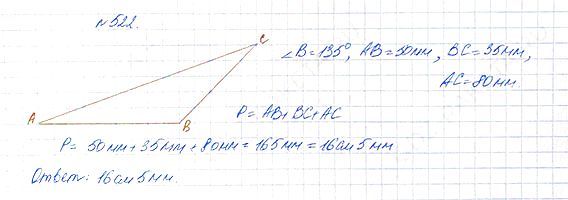 № 522.
C
∠B = 135°, AB = 50 мм, BC = 35 мм,
AC = 80 мм
A
B
P = AB + BC + AC
P = 50 мм + 35 мм + 80 мм = 165 мм = 16 см 5 мм
Ответ: 16 см 5 мм.